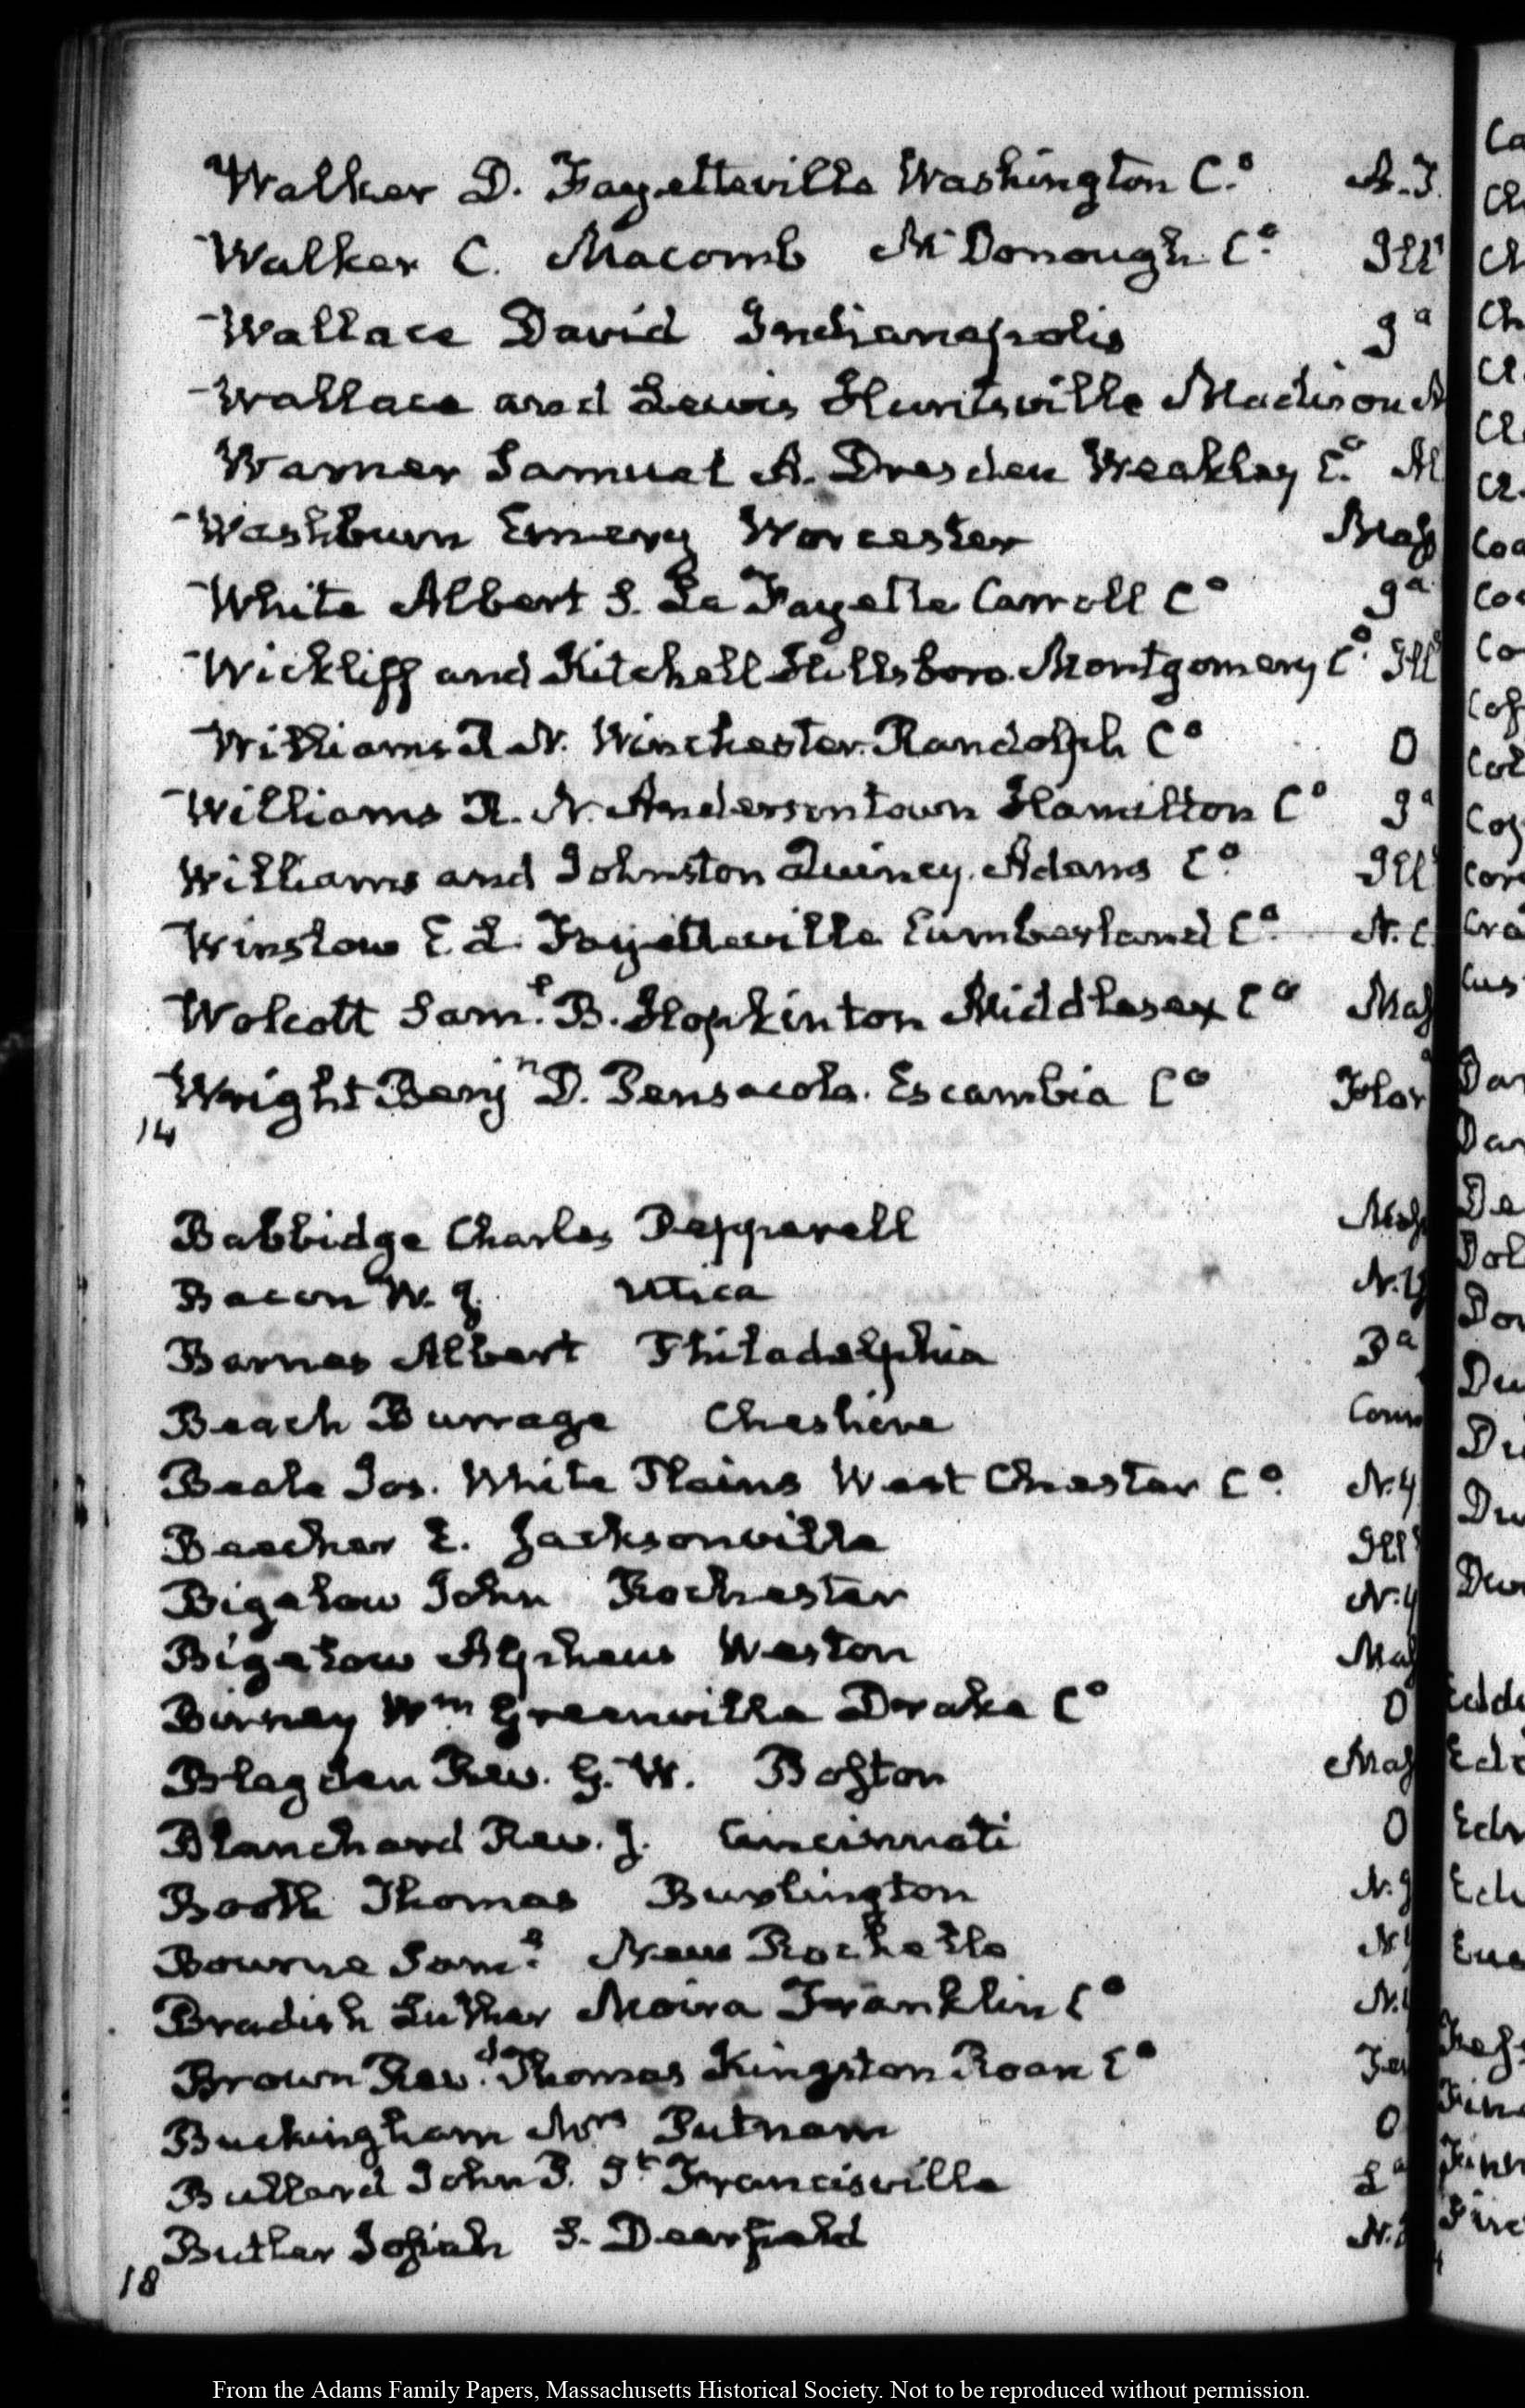 Walker D. Fayetteville Washington Co. A.T.
Walker C. Macomb McDonough Co. Ills
Wallace David Indianapolis Ia
Wallace and Lewis Huntsville Madison A
Warner Samuel A. Dresden Weakley Co. Al
Washburn Emery Worcester Mass
White Albert S. La Fayette Carroll Co Ia
Wickliff and Kitchell Hillsboro Montgomery Co. Ills
Williams R N. Winchester Randolph Co O
Williams R. N. Andersontown Hamilton Co Ia
Williams and Johnston Quincy. Adams Co. Ills
Winslow E L. Fayetteville Cumberland Co. N.C
Wolcott Saml. B. Hopkinton Middlesex Co Mass
Wright Benjn D. Pensacola. Escambia Co Flor
14
Babbidge Charles Pepperell Mass
Bacon W. J. Utica N.Y
Barnes Albert Philadelphia Pa
Beach Burrage Cheshire Conn
Beale Jos. White Plains West Chester Co. N.Y
Beecher E. Jacksonville Ills
Bigelow John Rochester N.Y
Bigelow Alpheus Weston Mass
Birney Wm Greenville Drake Co O
Blagden Rev. G. W. Boston Mass
Blanchard Rev. J. Cincinnati O
Booth Thomas Burlington N.J
Bourne Saml. New Rochelle N.Y
Bradish Luther Moira Franklin Co N.Y
Brown Revd. Thomas Kingston Roan Co Ten
Buckingham Mrs Putnam O
Bullard John P. St Francisville La
Butler Josiah S. Deerfield N.
18
Ca
Ch
Ch
Ch
Cl
Cl
Cl
Coa
Co
Co
Cof
Col
Cor
Cra
Cus
Dar
Dar
De
Dol
Don
Du
Edd
Edv
From the Adams Family Papers, Massachusetts Historical Society. Not to be reproduced without permission.